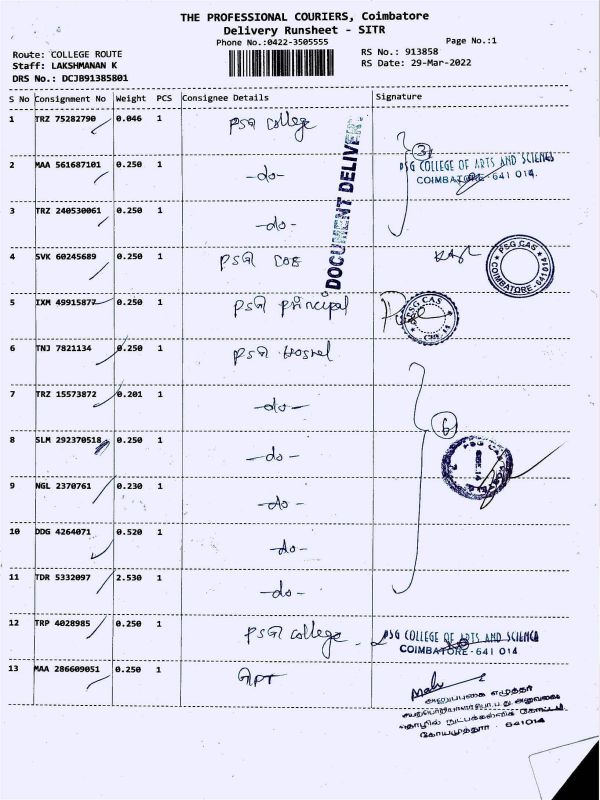 THE PROFESSIONAL COURIERS, Coimbatore
Delivery Runsheet - SITR
Phone No.:0422-3505555
Page No.:1
Route: COLLEGE ROUTE
Staff: LAKSHMANAN K
DRS No.: DCJB91385801
RS No.: 913858
RS Date: 29-Mar-2022
S No Consignment No Weight PCS Consignee Details Signature
1 TRZ 75282790 0.046 1 PSG College
DOCUMENT DELIVER
3
2 MAA 561687101 0.250 1 -do-
PSG COLLEGE OF ARTS AND SCIENCE
COIMBATORE-641 014.
3 TRZ 240530061 0.250 1 -do-
4 SVK 60245689 0.250 1 PSG COE
PSG CAS
COIMBATORE-641014
5 IXM 49915877 0.250 1 PSG principal
PSG CAS
CBE-14
6 TNJ 7821134 0.250 1 PSG Hostel
7 TRZ 15573872 0.201 1 -do-
6
8 SLM 292370518 0.250 1 -do-
PSG CAS
9 NGL 2370761 0.230 1 -do-
10 DDG 4264071 0.520 1 -do-
11 TDR 5332097 2.530 1 -do-
12 TRP 4028985 0.250 1 PSG College
PSG COLLEGE OF ARTS AND SCIENCE
COIMBATORE-641 014
13 MAA 286609051 0.250 1 GPT
அனுப்புகை எழுத்தர்
கோயமுத்தூர் - 641014